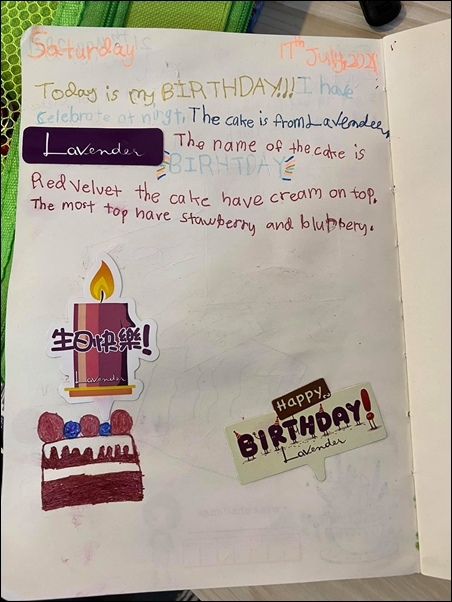 Saturday 17th July, 2021
Today is my BIRTHDAY!!! I have
celebrate at night, The cake is from Lavendeer,
Lavender The name of the cake is
BIRHTDAY
Red Velvet the cake have cream on top.
The most top have stawberry and blubbery.
生日快樂!
Lavender
Happy
BIRTHDAY!
Lavender